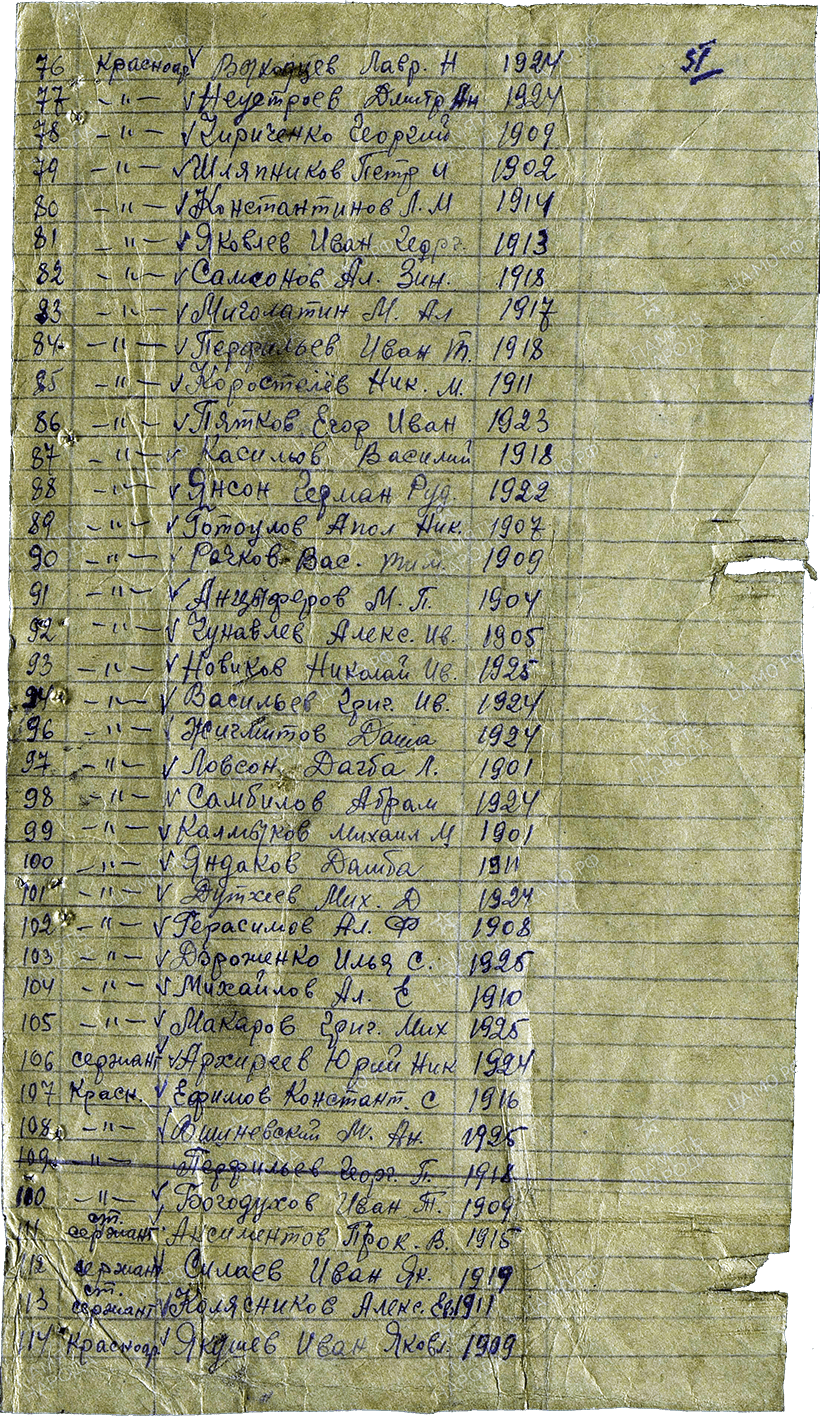 51
76 Красноар √ Выходцев Лавр. Н 1924
77 -"- √ Неустроев Дмитр Ан 1924
78 -"- √ Кириченко Георгий 1909
79 -"- √ Шляпников Петр И 1902
80 -"- √ Константинов Л. М 1914
81 -"- √ Яковлев Иван Георг. 1913
82 -"- √ Самсонов Ал. Зин. 1918
83 -"- √ Миголатин М. Ал 1917
84 -"- √ Перфильев Иван Т. 1918
85 -"- √ Коростелёв Ник. М. 1911
86 -"- √ Пятков Егор Иван 1923
87 -"- √ Касильов Василий 1918
88 -"- √ Янсон Герман Руд. 1922
89 -"- √ Готоулов Апол Ник. 1907
90 -"- √ Рачков Вас. Тим. 1909
91 -"- √ Анцыферов М. П. 1904
92 -"- √ Чунавлев Алекс. Ив. 1905
93 -"- √ Новиков Николай Ив. 1925
94 -"- √ Васильев Григ. Ив. 1924
96 -"- √ Жигмитов Даша 1924
97 -"- √ Ловсон Дагба Л. 1901
98 -"- √ Самбилов Абрам 1924
99 -"- √ Калмыков Михаил М 1901
100 -"- √ Яндаков Дамба 1911
101 -"- √ Дутхеев Мих. Д 1924
102 -"- √ Герасимов Ал. Ф 1908
103 -"- √ Дороженко Илья С. 1925
104 -"- √ Михайлов Ал. Е 1910
105 -"- √ Макаров Григ. Мих 1925
106 сержант √ Архиреев Юрий Ник 1924
107 Красн. √ Ефимов Констант. С 1916
108 -"- √ Вишневский М. Ан. 1925
109 -"- Перфильев Георг. П. 1918
110 -"- √ Богодухов Иван Т. 1909
111 ст. сержант Аксиментов Прок. В. 1915
112 сержант Силаев Иван Як. 1919
113 ст. сержант √ Колясников Алекс. Ев. 1911
114 Красноар √ Якушев Иван Яковл. 1909